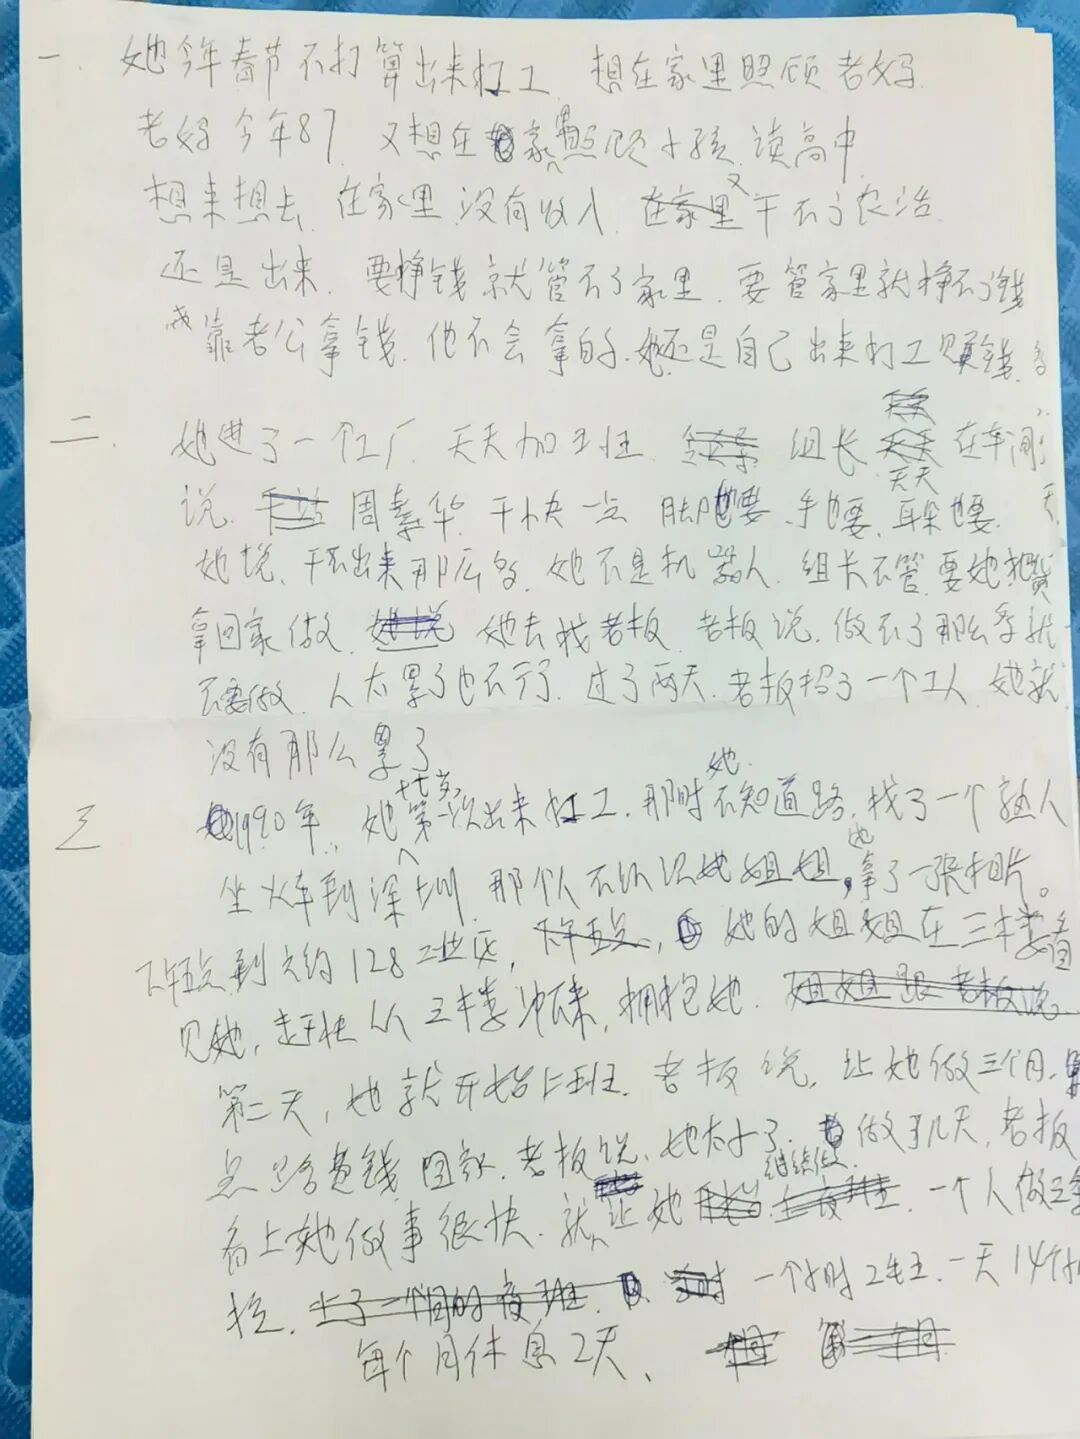 一. 她今年春节不打算出来打工 想在家里照顾老妈
老妈今年87. 又想在家里照顾小孩 读高中
想来想去. 在家里没有收入. 又干不了农活
还是出来. 要挣钱就管不了家里. 要管家里就挣不了钱
靠老公拿钱. 他不会拿的. 她还是自己出来打工赚钱.
二. 她进了一个工厂. 天天加班. 组长天天在车间
说. 周素华 干快一点 脚也要. 手也要. 耳朵也要.
她说. 干不出来那么多. 她不是机器人. 组长不管 要她把货
拿回家做. 她去找老板. 老板说. 做不了那么多就
不要做. 人太累了也不行了. 过了两天. 老板招了一个工人 她就
没有那么累了
三 1990年, 她十七岁第一次出来打工. 那时她不知道路. 找了一个熟人
坐火车到深圳. 那个人不认识她姐姐, 她拿了一张相片。
下午五点到大约128工业区, 她的姐姐在三楼看
见她, 赶快从三楼冲下来, 拥抱她.
第二天, 她就开始上班. 老板说, 让她做三个月.
路费钱回家. 老板说, 她太小了. 做了几天, 老板
看上她做事很快. 就让她继续做. 一个人做三条
拉. 一个小时2毛五. 一天14个小
每个月休息2天、